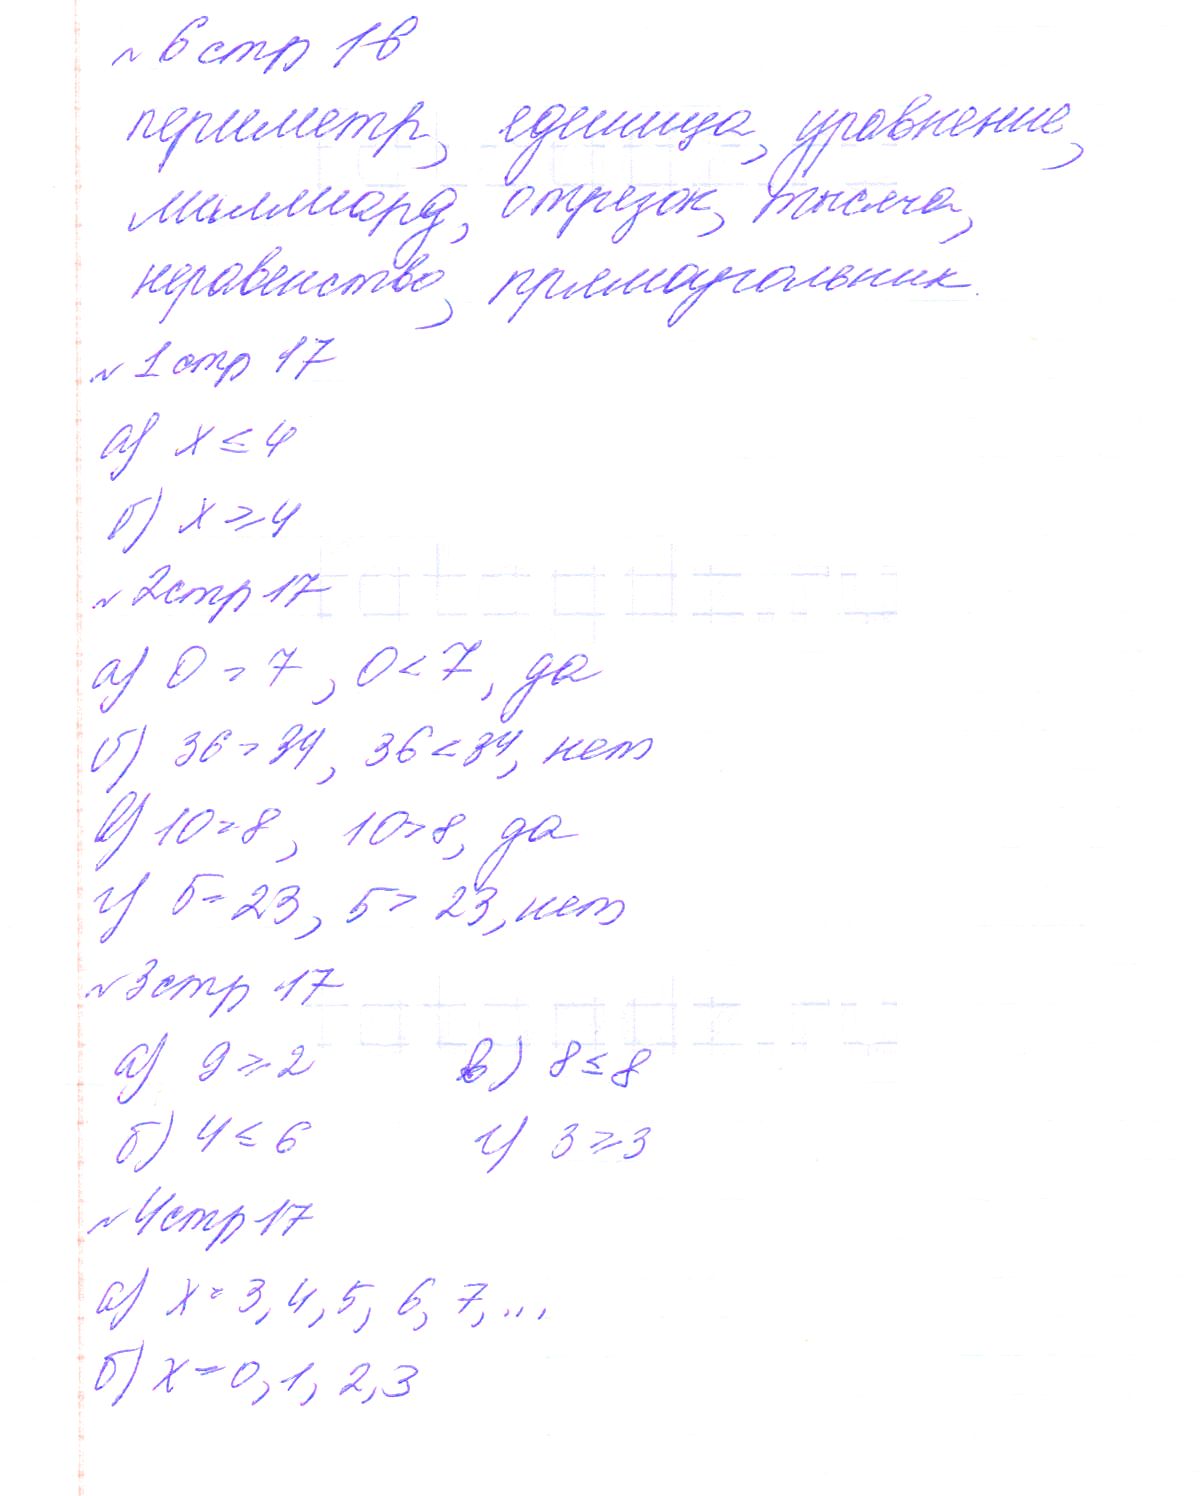 № 6 стр 16
периметр, единица, уравнение,
миллиард, отрезок, тысяча,
неравенство, прямоугольник.
№ 1 стр 17
а) x ≤ 4
б) x ≥ 4
№ 2 стр 17
а) 0 = 7, 0 < 7, да
б) 36 = 34, 36 < 34, нет
в) 10 = 8, 10 > 8, да
г) 5 = 23, 5 > 23, нет
№ 3 стр 17
а) 9 ≥ 2 в) 8 ≤ 8
б) 4 ≤ 6 г) 3 ≥ 3
№ 4 стр 17
а) x = 3, 4, 5, 6, 7, ...
б) x = 0, 1, 2, 3